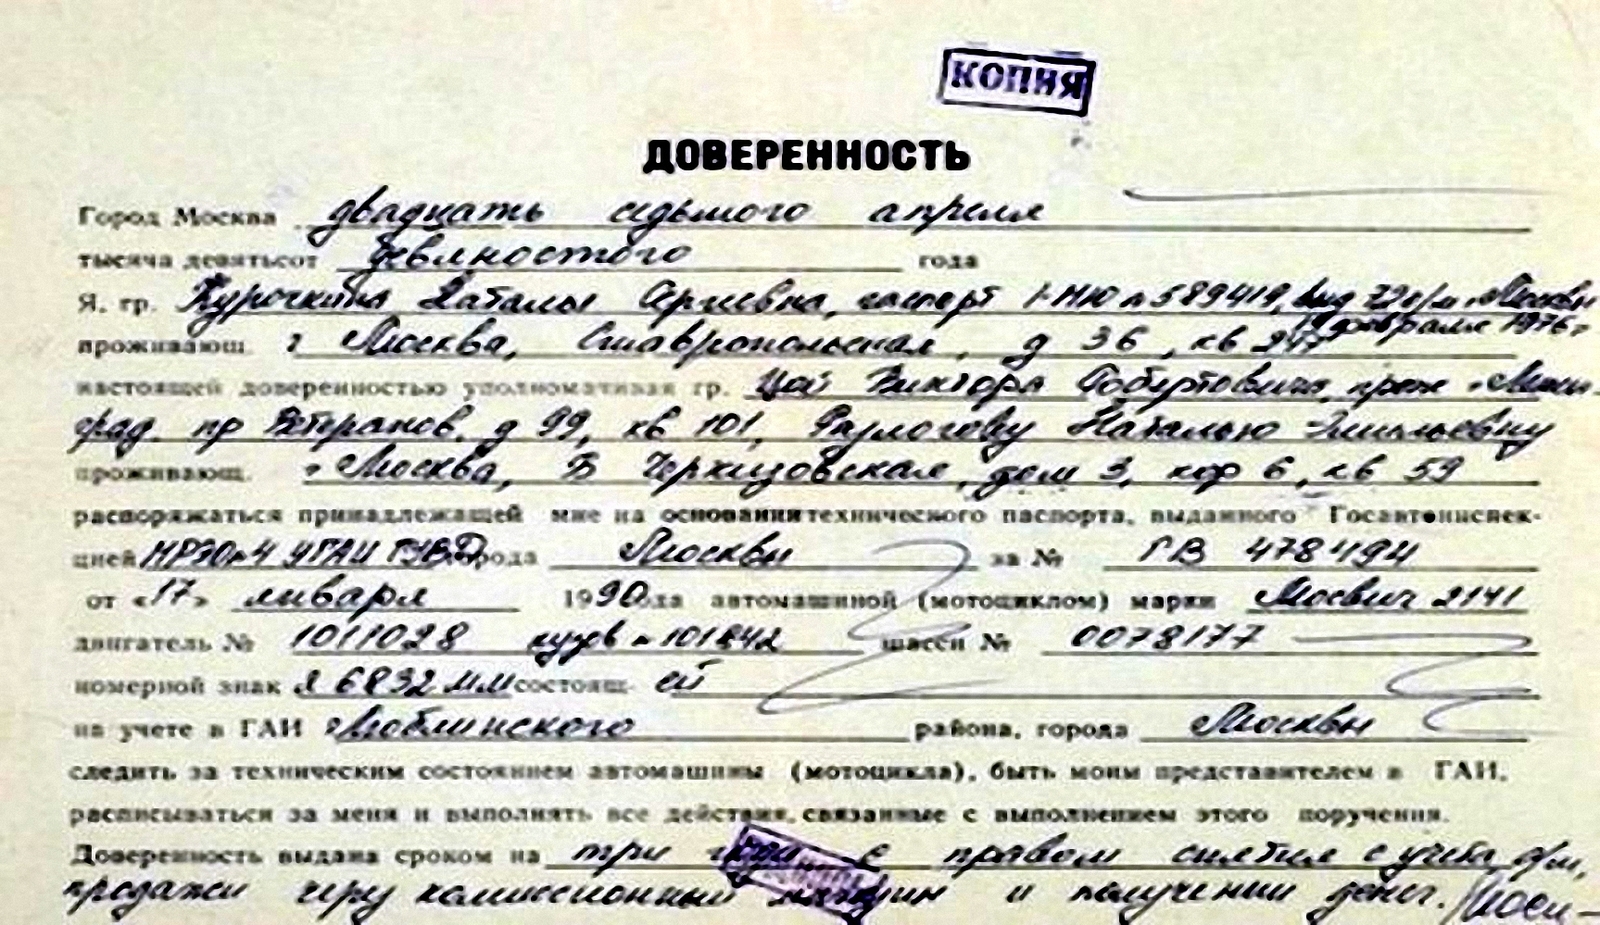 КОПИЯ
ДОВЕРЕННОСТЬ
Город Москва двадцать седьмого апреля
тысяча девятьсот девяностого года
Я, гр. Курочкина Наталья Сергеевна, паспорт I-МЮ № 589419, выд 72 о/м г. Москвы
19 февраля 1976 г
проживающ. г Москва, Ставропольская, д 36, кв 247
настоящей доверенностью уполномачивая гр. Цой Виктора Робертовича, прож г. Ленин-
град. пр Ветеранов. д 99, кв 101, Разлогову Наталью Эмильевну
проживающ. г Москва, Б Черкизовская, дом 3, кор 6, кв 59
распоряжаться принадлежащей мне на основании технического паспорта, выданного Госавтоинспек-
цией МРЭО № 4 УГАИ ГУВД города Москвы за № ГВ 478494
от «17» января 1990 года автомашиной (мотоциклом) марки Москвич 2141
двигатель № 1011028 кузов № 101842 шасси № 0078177
номерной знак Я 6832 ММ состоящ. ей
на учете в ГАИ Люблинского района, города Москвы
следить за техническим состоянием автомашины (мотоцикла), быть моим представителем в ГАИ,
расписываться за меня и выполнять все действия, связанные с выполнением этого поручения.
Доверенность выдана сроком на три года с правом снятия с учета а/м,
продажи через комиссионный магазин и получении денег.